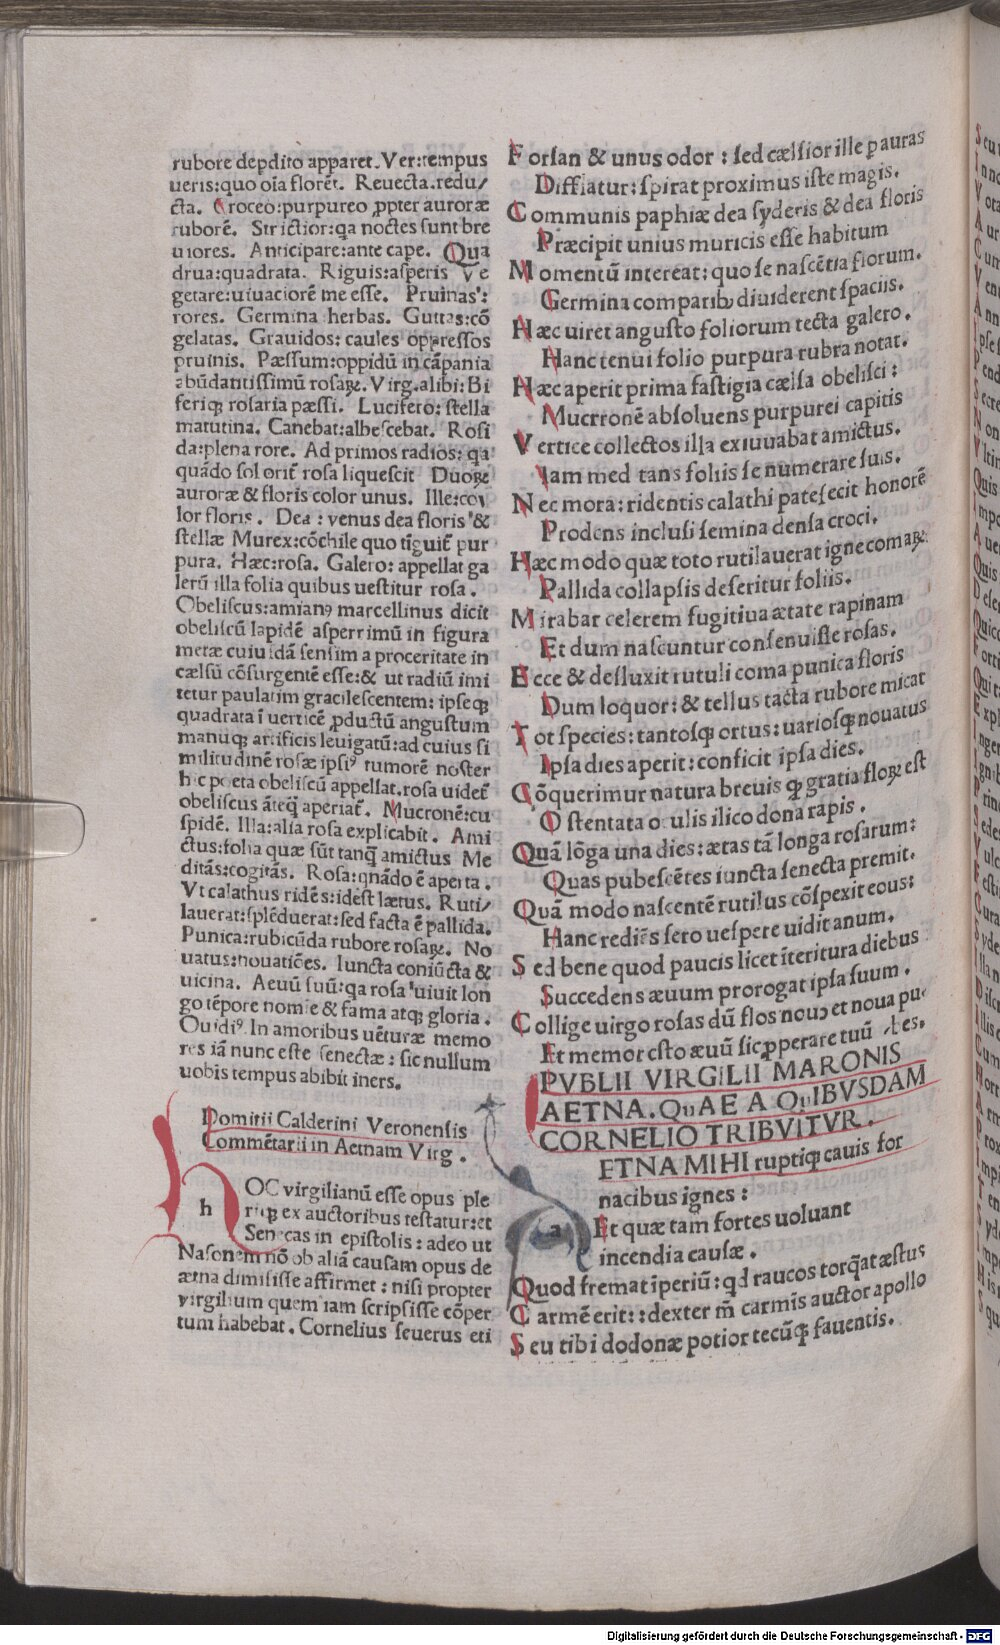 rubore depdito apparet. Ver:tempus
ueris:quo oīa florēt. Reuecta.redu/
cta. Croceo:purpureo ꝓpter auroræ
ruborē. Strictior:qa noctes sunt bre
uiores. Anticipare:ante cape. Qua
drua:quadrata. Riguis:asperis Ve
getare:uiuaciorē me esse. Pruinas:
rores. Germina herbas. Guttas:cō
gelatas. Grauidos: caules oppressos
pruinis. Pæssum:oppidū in cāpania
abūdantissimū rosaꝝ. Virg.alibi:Bi
feriqꝫ rosaria pæsti. Lucifero: stella
matutina. Canebat:albescebat. Rosi
da:plena rore. Ad primos radios: qa
quādo sol orit̄ rosa liquescit Duoꝝ
auroræ & floris color unus. Ille:co
lor floris. Dea: venus dea floris &
stellæ Murex:cōchile quo tīguit̄ pur
pura. Hæc:rosa. Galero: appellat ga
lerū illa folia quibus uestitur rosa.
Obeliscus:amianꝰ marcellinus dicit
obeliscū lapidē asperrimū in figura
metæ cuiusdā sensim a proceritate in
cælsū cōsurgentē esse:& ut radiū imi
tetur paulatim gracilescentem: ipseqꝫ
quadrata ī uerticē ꝓductū angustum
manuqꝫ artificis leuigatū:ad cuius si
militudinē rosæ ipsiꝰ tumorē noster
hic poeta obeliscū appellat.rosa uidet̄
obeliscus āteqꝫ aperiat̄. Mucronē:cu
spidē. Illa:alia rosa explicabit. Ami
ctus:folia quæ sūt tanqꝫ amictus Me
ditās:cogitās. Rosa:qnādo ē aperta.
Vt calathus ridēs:idest lætus. Ruti/
lauerat:splēduerat:sed facta ē pallida.
Punica:rubicūda rubore rosaꝝ. No
uatus:nouatiōes. Iuncta coniūcta &
uicina. Aeuū suū:qa rosa uiuit lon
go tēpore nomīe & fama atqꝫ gloria.
Ouidiꝰ In amoribus uēturæ memo
res iā nunc este senectæ: sic nullum
uobis tempus abibit iners.
Domitii Calderini Veronensis
Commētarii in Aetnam Virg.
h
OC virgilianū esse opus ple
riqꝫ ex auctoribus testatur:et
Senecas in epistolis: adeo ut
Nasonem nō ob aliā causam opus de
ætna dimisisse affirmet: nisi propter
virgilium quem iam scripsisse cōper
tum habebat. Cornelius seuerus eti
Forsan & unus odor: sed cælsior ille p auras
Difflatur: spirat proximus iste magis.
Communis paphiæ dea syderis & dea floris
Præcipit unius muricis esse habitum
Momentū intereat: quo se nascētia florum.
Germina comparibꝫ diuiderent spaciis.
Hæc uiret angusto foliorum tecta galero.
Hanc tenui folio purpura rubra notat.
Hæc aperit prima fastigia cælsa obelisci:
Mucrronē absoluens purpurei capitis
Vertice collectos illa exiuuabat amictus.
Iam med tans foliis se numerare suis.
Nec mora: ridentis calathi patefecit honorē
Prodens inclusi semina densa croci.
Hæc modo quæ toto rutilauerat igne comaꝝ
Pallida collapsis deseritur foliis.
Mirabar celerem fugitiua ætate rapinam
Et dum nascuntur consenuisse rosas.
Ecce & defluxit rutuli coma punica floris
Dum loquor: & tellus tacta rubore micat
Tot species: tantosqꝫ ortus: uariosqꝫ nouatus
Ipsa dies aperit: conficit ipsa dies.
Cōquerimur natura breuis qꝫ gratia floꝝ est
Ostentata o ulis ilico dona rapis.
Quā lōga una dies: ætas tā longa rosarum:
Quas pubescētes iuncta senecta premit.
Quā modo nascentē rutilus cōspexit eous:
Hanc rediēs sero uespere uidit anum.
Sed bene quod paucis licet īteritura diebus
Succedens æuum prorogat ipsa suum.
Collige uirgo rosas dū flos nouꝰ et noua pu
Et memor esto æuū sic ꝓperare tuū /bes.
PVBLII VIRGILII MARONIS
AETNA. QuAE A QuIBVSDAM
CORNELIO TRIBVITVR.
a
ETNA MIHI ruptiqꝫ cauis for
nacibus ignes:
Et quæ tam fortes uoluant
incendia causæ.
Quod fremat īperiū: qd raucos torqꝫat æstus
Carmē erit: : dexter m̄ carmis auctor apollo
Seu tibi dodonæ potior tecūqꝫ fauentis.
Digitalisierung gefördert durch die Deutsche Forschungsgemeinschaft - DFG